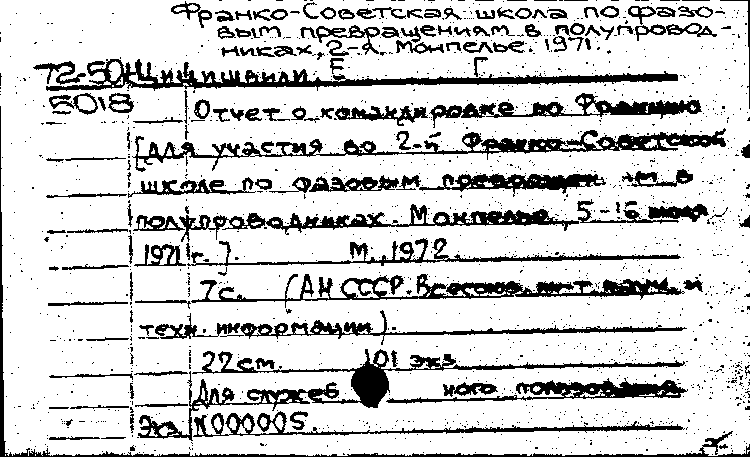 Франко-Советская школа по фазо-
вым превращениям в полупровод-
никах, 2-я. Монпелье. 1971.
72-50 Нцицишвили, Е Г.
5018 Отчет о командировке во Францию
[для участия во 2-й Франко-Советской
школе по фазовым в
полупроводниках. Монпелье, 5-16
1971 г.]. М., 1972.
7с. (АН СССР. Всесоюз. ин-т науч. и
техн. информации).
22 см. 101 экз
Для служеб ного пользования
Экз. N000005.